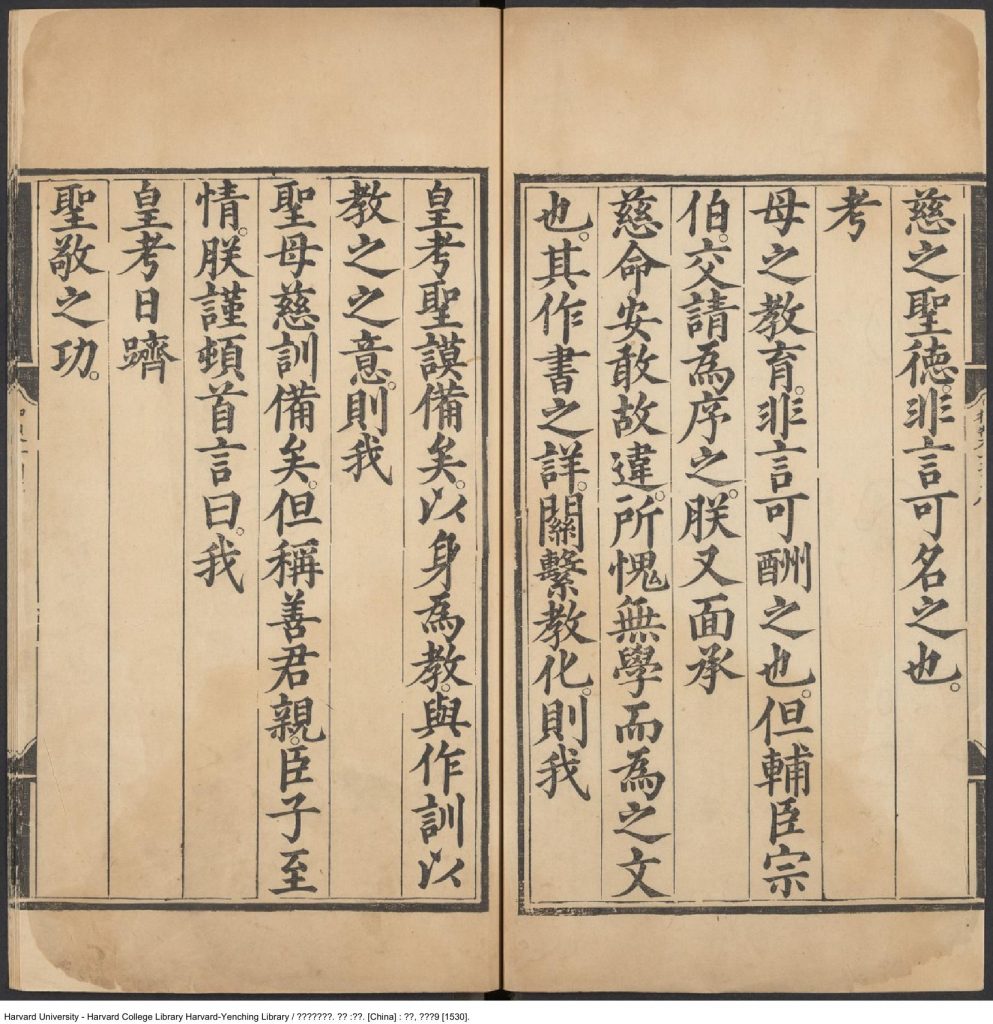 慈之聖德。非言可名之也。
考
母之教育。非言可酬之也。但輔臣宗
伯。交請為序之。朕又面承
慈命安敢故違。所愧無學而為之文
也。其作書之詳。關繫教化。則我
皇考聖謨備矣。以身為教。與作訓以
教之之意。則我
聖母慈訓備矣。但稱善君親。臣子至
情。朕謹頓首言曰。我
皇考日躋
聖敬之功。
Harvard University - Harvard College Library Harvard-Yenching Library / ???????. ?? :??. [China] : ??, ???9 [1530].